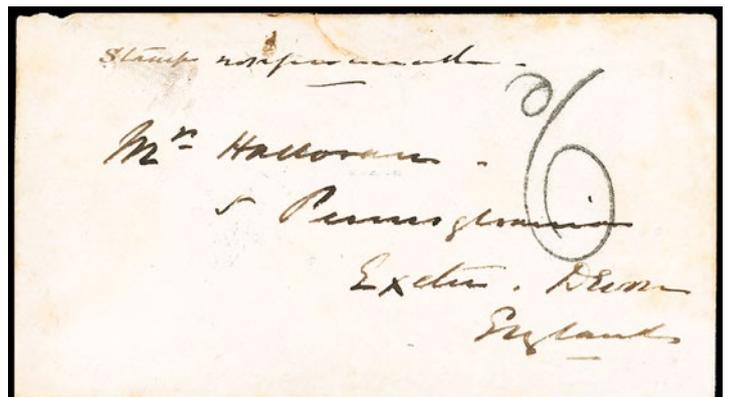 Stamps not procurable.
Mrs Halloran.
5 Pennsylvania
Exeter. Devon
England
6